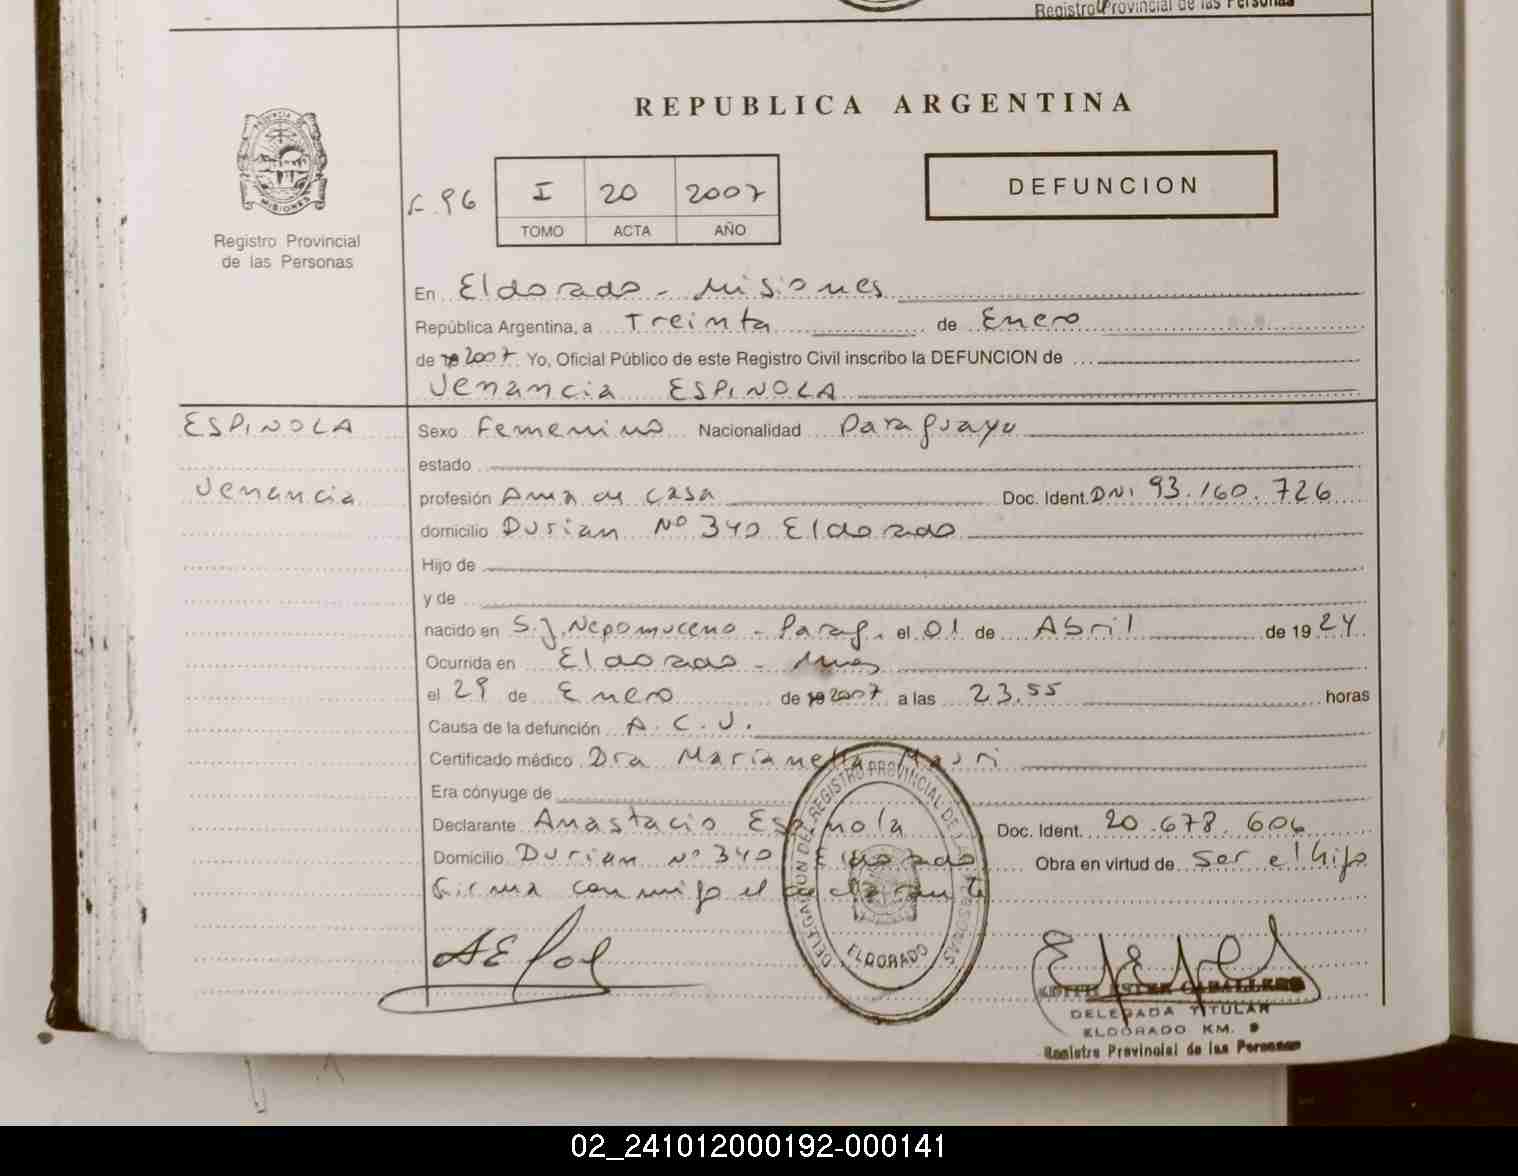 Registro Provincial de las Personas
REPUBLICA ARGENTINA
PROVINCIA DE
MISIONES
Registro Provincial
de las Personas
96
I 20 2007
TOMO ACTA AÑO
DEFUNCION
En Eldorado - Misiones
República Argentina, a Treinta de Enero
de 2007. Yo, Oficial Público de este Registro Civil inscribo la DEFUNCION de
Venancia ESPINOLA
ESPINOLA
Venancia
Sexo Femenino Nacionalidad Paraguaya
estado
profesión Ama de casa Doc. Ident. DNI 93.160.726
domicilio Durian Nº 340 Eldorado
Hijo de
y de
nacido en S.J. Nepomuceno - Parag. el 01 de Abril de 1924
Ocurrida en Eldorado - Mnes
el 29 de Enero de 2007 a las 23.55 horas
Causa de la defunción A.C.V.
Certificado médico Dra Marianella Mauri
Era cónyuge de
Declarante Anastacio Espinola Doc. Ident. 20.678.606
Domicilio Durian Nº 340 Eldorado Obra en virtud de Ser el hijo
Firma conmigo el declarante
DELEGACION DEL REGISTRO PROVINCIAL DE LAS PERSONAS
ELDORADO
ESTER CABALLERO
DELEGADA TITULAR
ELDORADO KM. 9
Registro Provincial de las Personas
02_241012000192-000141